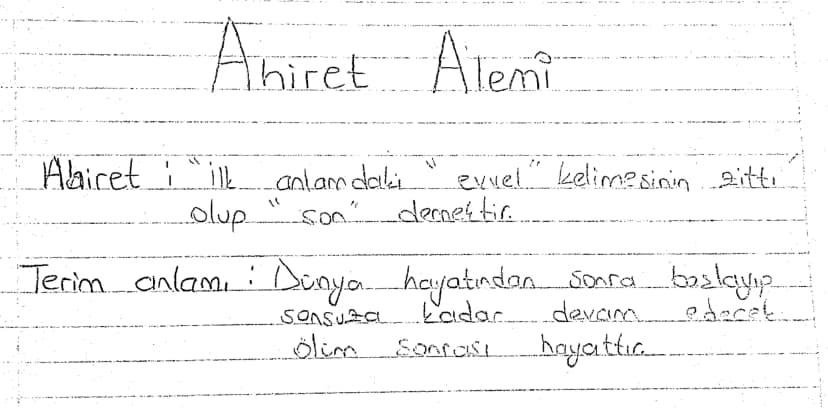 Ahiret Alemi
Ahiret : "ilk anlamdaki "evvel" kelimesinin zıttı
olup "son" demektir.
Terim anlamı : Dünya hayatından sonra başlayıp
sonsuza kadar devam edecek
ölüm sonrası hayattır.